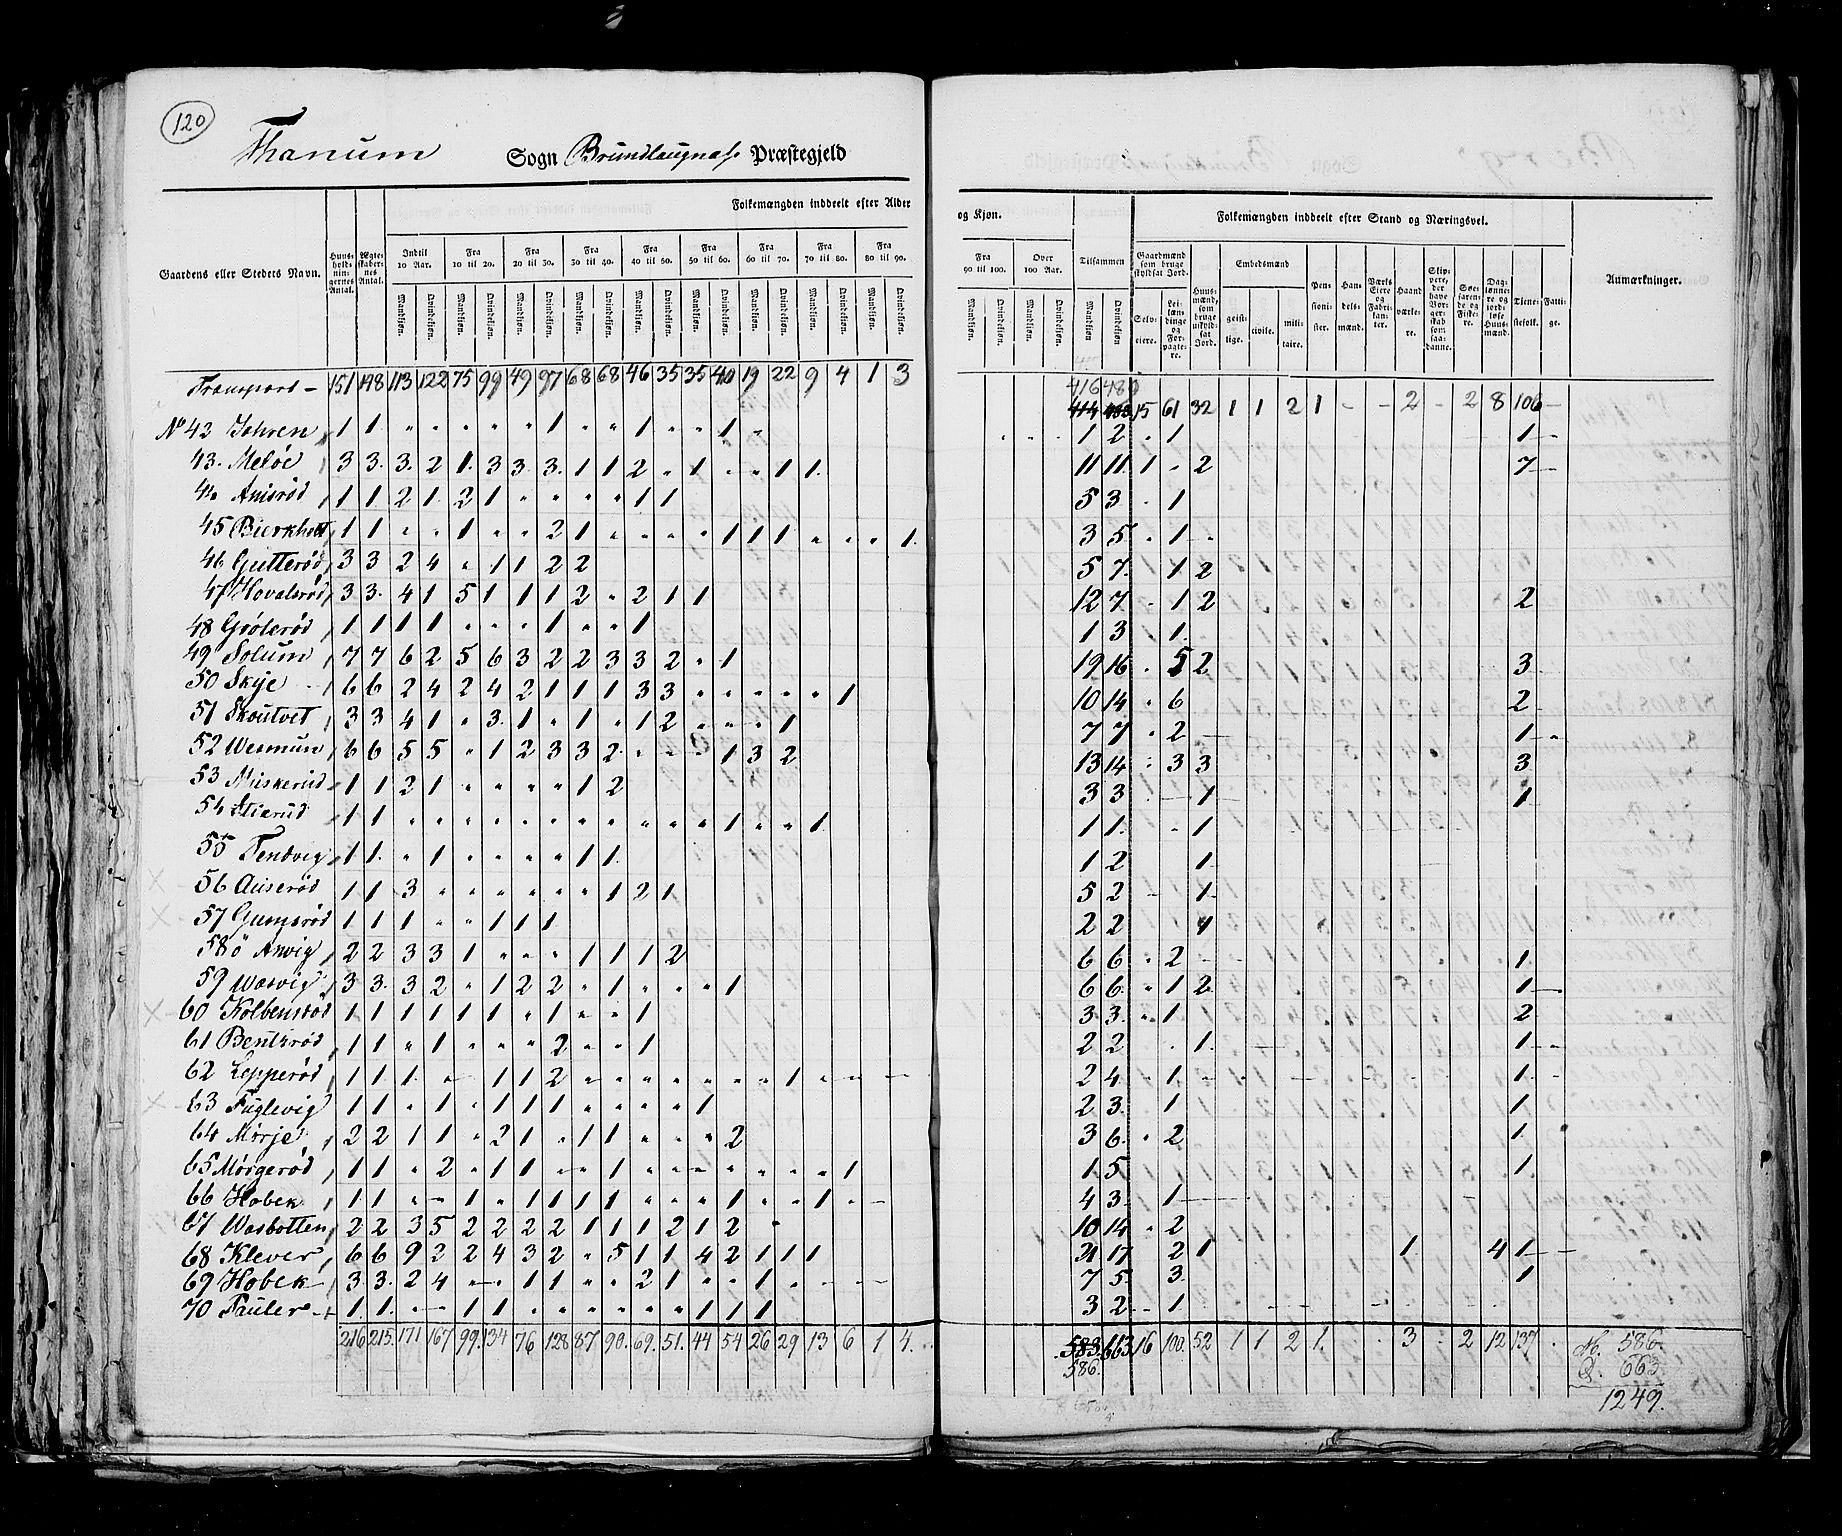 120
Thanum Sogn Brundlaugnæs Præstegjeld
Folkemængden inddeelt efter Alder og Kjøn. Folkemængden inddeelt efter Stand og Næringsvei.
Gaardens eller Stedets Navn. Huusholdningernes Antal. Ægteskabernes Antal. Indtil 10 Aar. Fra 10 til 20. Fra 20 til 30. Fra 30 til 40. Fra 40 til 50. Fra 50 til 60. Fra 60 til 70. Fra 70 til 80. Fra 80 til 90. Fra 90 til 100. Over 100 Aar. Tilsammen Gaardmænd som bruge skyldsat Jord. Huusmænd, som bruge uskyldsat Jord. Embedsmænd Pensionister. Handelsmænd. Værks Eiere og Fabrikanter. Haandværkere. Skippere, der have Borgerskab som saadanne. Søefarende og Fiskere. Daglønnere og jordløse Huusmænd. Tienestefolk. Fattige. Anmærkninger.
Mandkjøn. Qvindekjøn. Mandkjøn. Qvindekjøn. Mandkjøn. Qvindekjøn. Mandkjøn. Qvindekjøn. Mandkjøn. Qvindekjøn. Mandkjøn. Qvindekjøn. Mandkjøn. Qvindekjøn. Mandkjøn. Qvindekjøn. Mandkjøn. Qvindekjøn. Mandkjøn. Qvindekjøn. Mandkjøn. Qvindekjøn. Mandkjøn Qvindekjøn Selveiere. Leilændinge og Forpagtere. geistlige. civile. militaire.
Transport – 151 148 113 122 75 99 49 97 68 68 46 35 35 40 19 22 9 4 1 3 416 480
15 61 32 1 1 2 1 - - 2 - 2 8 106 -
No 42 Johren 1 1 " " " " " 1 " " 1 " " 1 " 1 2 " 1 1 -
43. Meløe 3 3. 3. 2 1. 3 3. 3. 1 1 2 " 1 - " 1 1. 11 11. 1 " 2 7 -
44 Anisrød 1 1 2 1. 2 1 " " " " 1 1 5 3. " 1
45 Bierkholt 1 1 " " 1 " " 2 1 " " " " 1 1 1 " " " 1. 3 5. " 1 "
46 Gutterød 3 3 2 4 " 1 1 2 2 5 7. " 1 2
47 Hovalsrød 3 3. 4 1 5 1 1 1 2 " 2 1 1 12 7 " 1 2 2
48 Grølsrød 1 1 1 1 " " " 1 " " 1 1 3 " 1.
49 Solum 7 7 6 2 5 6 3 2 2 3 3 2 " 1 19 16 " 5 2 3
50 Skije 6 6 2 4 2 4 2 1 1 1 3 3 " " " " " 1 10 14 " 6 2
51 Skoutvet 3 3 4 1 " 3. 1 " 1 " 1 2 " " " 1 7 7 " 2 - 1 - "
52 Wemmun 6 6 5 5 " 1 2 3 3 2 " " " 1 3 2 13 14 " 3 3 3
53 Miskerud 1 1 2 1 " " " " 1 2 3 3 - - 1 1
54 1 1 " " " " " " " " " " " 1 " " 1 1 1. " 1
55 Tendvig 1 1. " 1 " " " " 1 1. 1 2 1
56 Auserød 1 1 3 " " " " " " 1 2 1 5 2 1
57 Gumsrød 1 1 1 " " 1 1 1 2 2 1
58 ö Anvig 2 2 3 3 1 " " " 1 1 1 2 6 6 " 2 - 1
59 Wasvig 3 3. 3 2 " 1 2 2 " 1 " " " 1 6 6. " 1 2 1 -
60 Kolbensrød 1 1 1 1 1 1 " 1 " " 1 3 3. " 1 2
61 Bentsrød 1 1 " 1 " " " 2 " " 1 2 2 " 1. 1 -
62 Lepperød 1 1 1 - 1 1 2 " " " " " " 1 " - - 2 4. " 1 - 1 -
63 Fuglevig 1 1 " 1 " 1 1 1 " " " " 1 2 3. 1 1
64 Mørje 2 2 1 1 " 2 1 " 1 1 " " " 2 3 6. " 2 1
65 Mørgerød 1 1 " 2 " 1 1 " " 1 " " " " " " " 1 1 5 1
66 Hobek 1 1 " - 1 " 1 1 1 1 " " " 1 " " 1 " - 4 3. 1 -
67 Wasbotten 2 2 3 5 2 2 2 2 1 1 1 2 1 2 " 10 14 " 2
68 Klever 6 6 9 2 2 4 3 2 " 5 1 1 4 2 1 1 1 21 17 2 1 1 4 1 -
69 Hobek 3 3. 2 4 - " 1 1 " " 2 1 " " 1 " - - 7 5. 3 1
70 Pauler 1 1. " - 1 1 " " " " " " 1 1 1 3 2 - 1
216 215. 171 167 99. 134 76 128 87 90. 69. 51. 44 54 26 29 13 6 1 4. 583. 663. 16 100. 52 1 1 2 1. 3 2 12 137 M. 586.
586. Q. 663
1249.